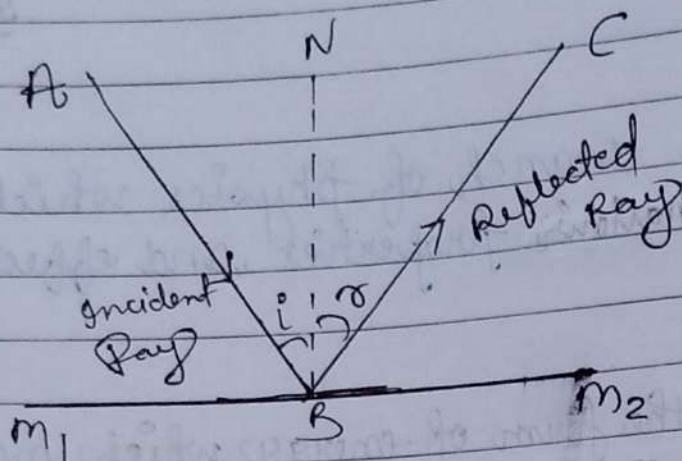 N
A
C
Reflected
Ray
Incident
Ray
i
r
M1
B
M2